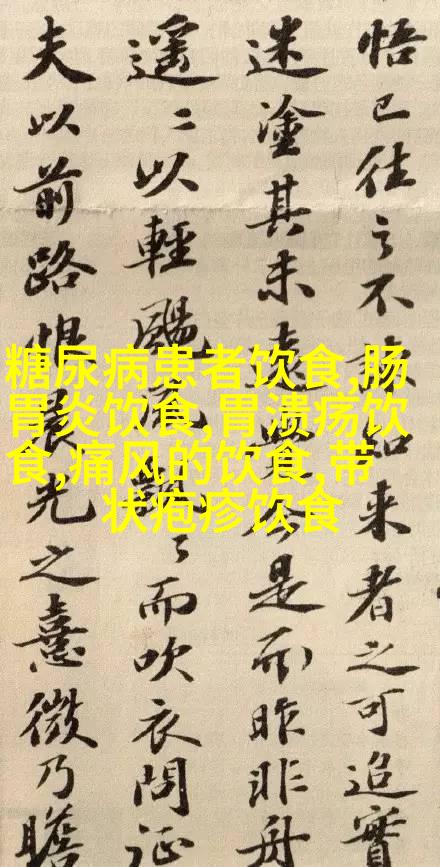 悟已往之不諫知来者之可追實
迷塗其未遠覺今是而昨非舟
遥〻以輕颺風飄〻而吹衣問征
夫以前路恨晨光之熹微乃瞻
糖尿病患者饮食,肠
胃炎饮食,胃溃疡饮
食,痛风的饮食,带
状疱疹饮食